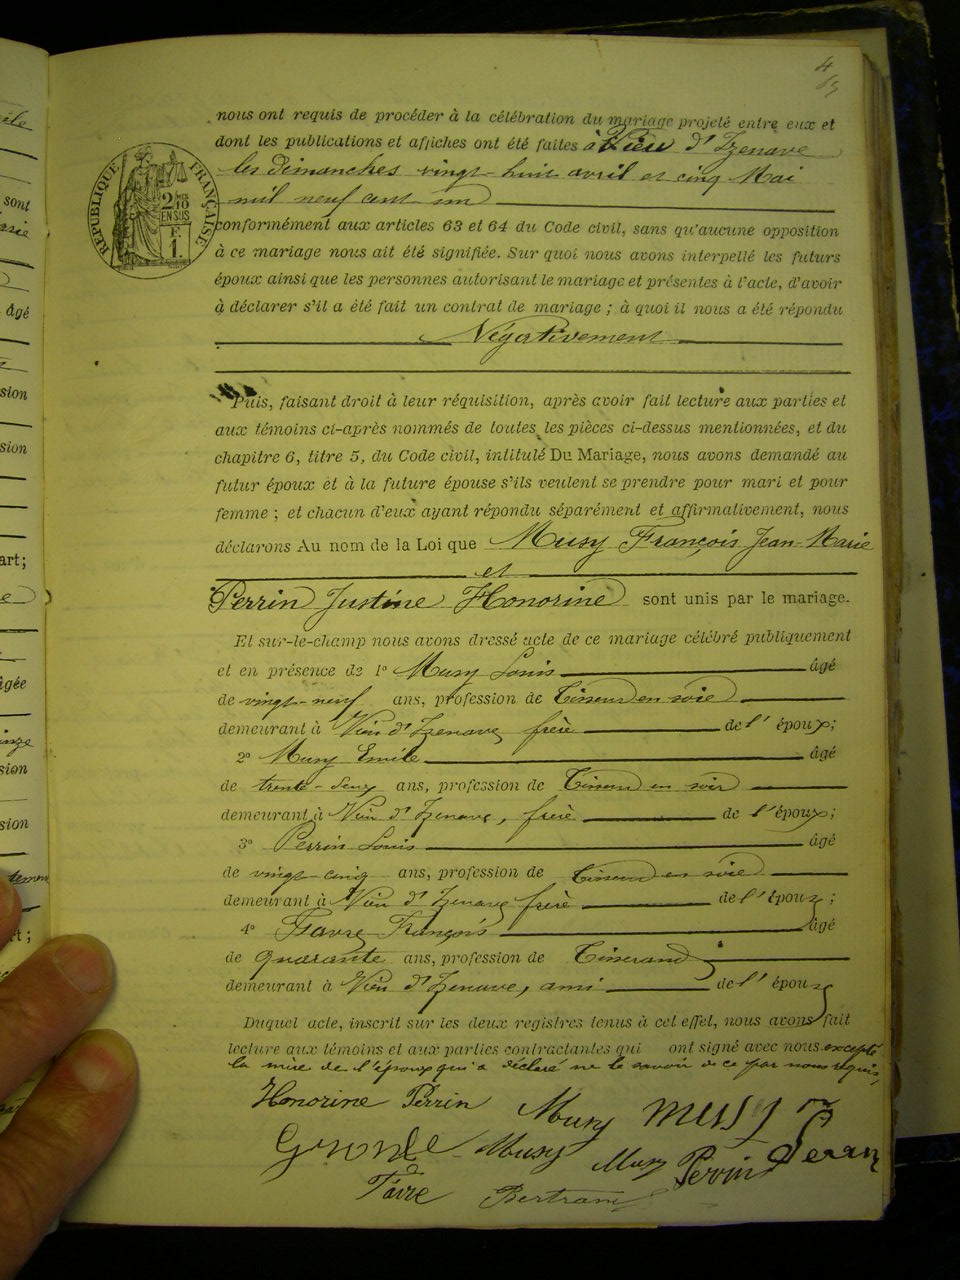 4
65
nous ont requis de procéder à la célébration du mariage projeté entre eux et
dont les publications et affiches ont été faites à Vieu d'Izenave
les dimanches vingt-huit avril et cinq Mai
mil neuf cent un
conformément aux articles 63 et 64 du Code civil, sans qu'aucune opposition
à ce mariage nous ait été signifiée. Sur quoi nous avons interpellé les futurs
époux ainsi que les personnes autorisant le mariage et présentes à l'acte, d'avoir
à déclarer s'il a été fait un contrat de mariage ; à quoi il nous a été répondu
Négativement
RÉPUBLIQUE FRANÇAISE
2/10 EN SUS
1 F.
Puis, faisant droit à leur réquisition, après avoir fait lecture aux parties et
aux témoins ci-après nommés de toutes les pièces ci-dessus mentionnées, et du
chapitre 6, titre 5, du Code civil, intitulé Du Mariage, nous avons demandé au
futur époux et à la future épouse s'ils veulent se prendre pour mari et pour
femme ; et chacun d'eux ayant répondu séparément et affirmativement, nous
déclarons Au nom de la Loi que Musy François Jean-Marie
et
Perrin Justine Honorine sont unis par le mariage.
Et sur-le-champ nous avons dressé acte de ce mariage célébré publiquement
et en présence de 1° Musy Louis âgé
de vingt-neuf ans, profession de Tisseur en soie
demeurant à Vieu d'Izenave, frère de l'époux;
2° Musy Emile âgé
de trente-deux ans, profession de Tisseur en soie
demeurant à Vieu d'Izenave, frère de l'époux;
3° Perrin Louis âgé
de vingt-cinq ans, profession de Tisseur en soie
demeurant à Vieu d'Izenave frère de l'épouz;
4° Favre François âgé
de quarante ans, profession de Tisserand
demeurant à Vieu d'Izenave, ami de l'époux
Duquel acte, inscrit sur les deux registres tenus à cet effet, nous avons fait
lecture aux témoins et aux parties contractantes qui ont signé avec nous excepté
la mère de l'époux qui a déclaré ne le savoir de ce par nous requis,
Honorine Perrin Musy Musy
Musy Musy Perrin Perrin
Favre Bertrand